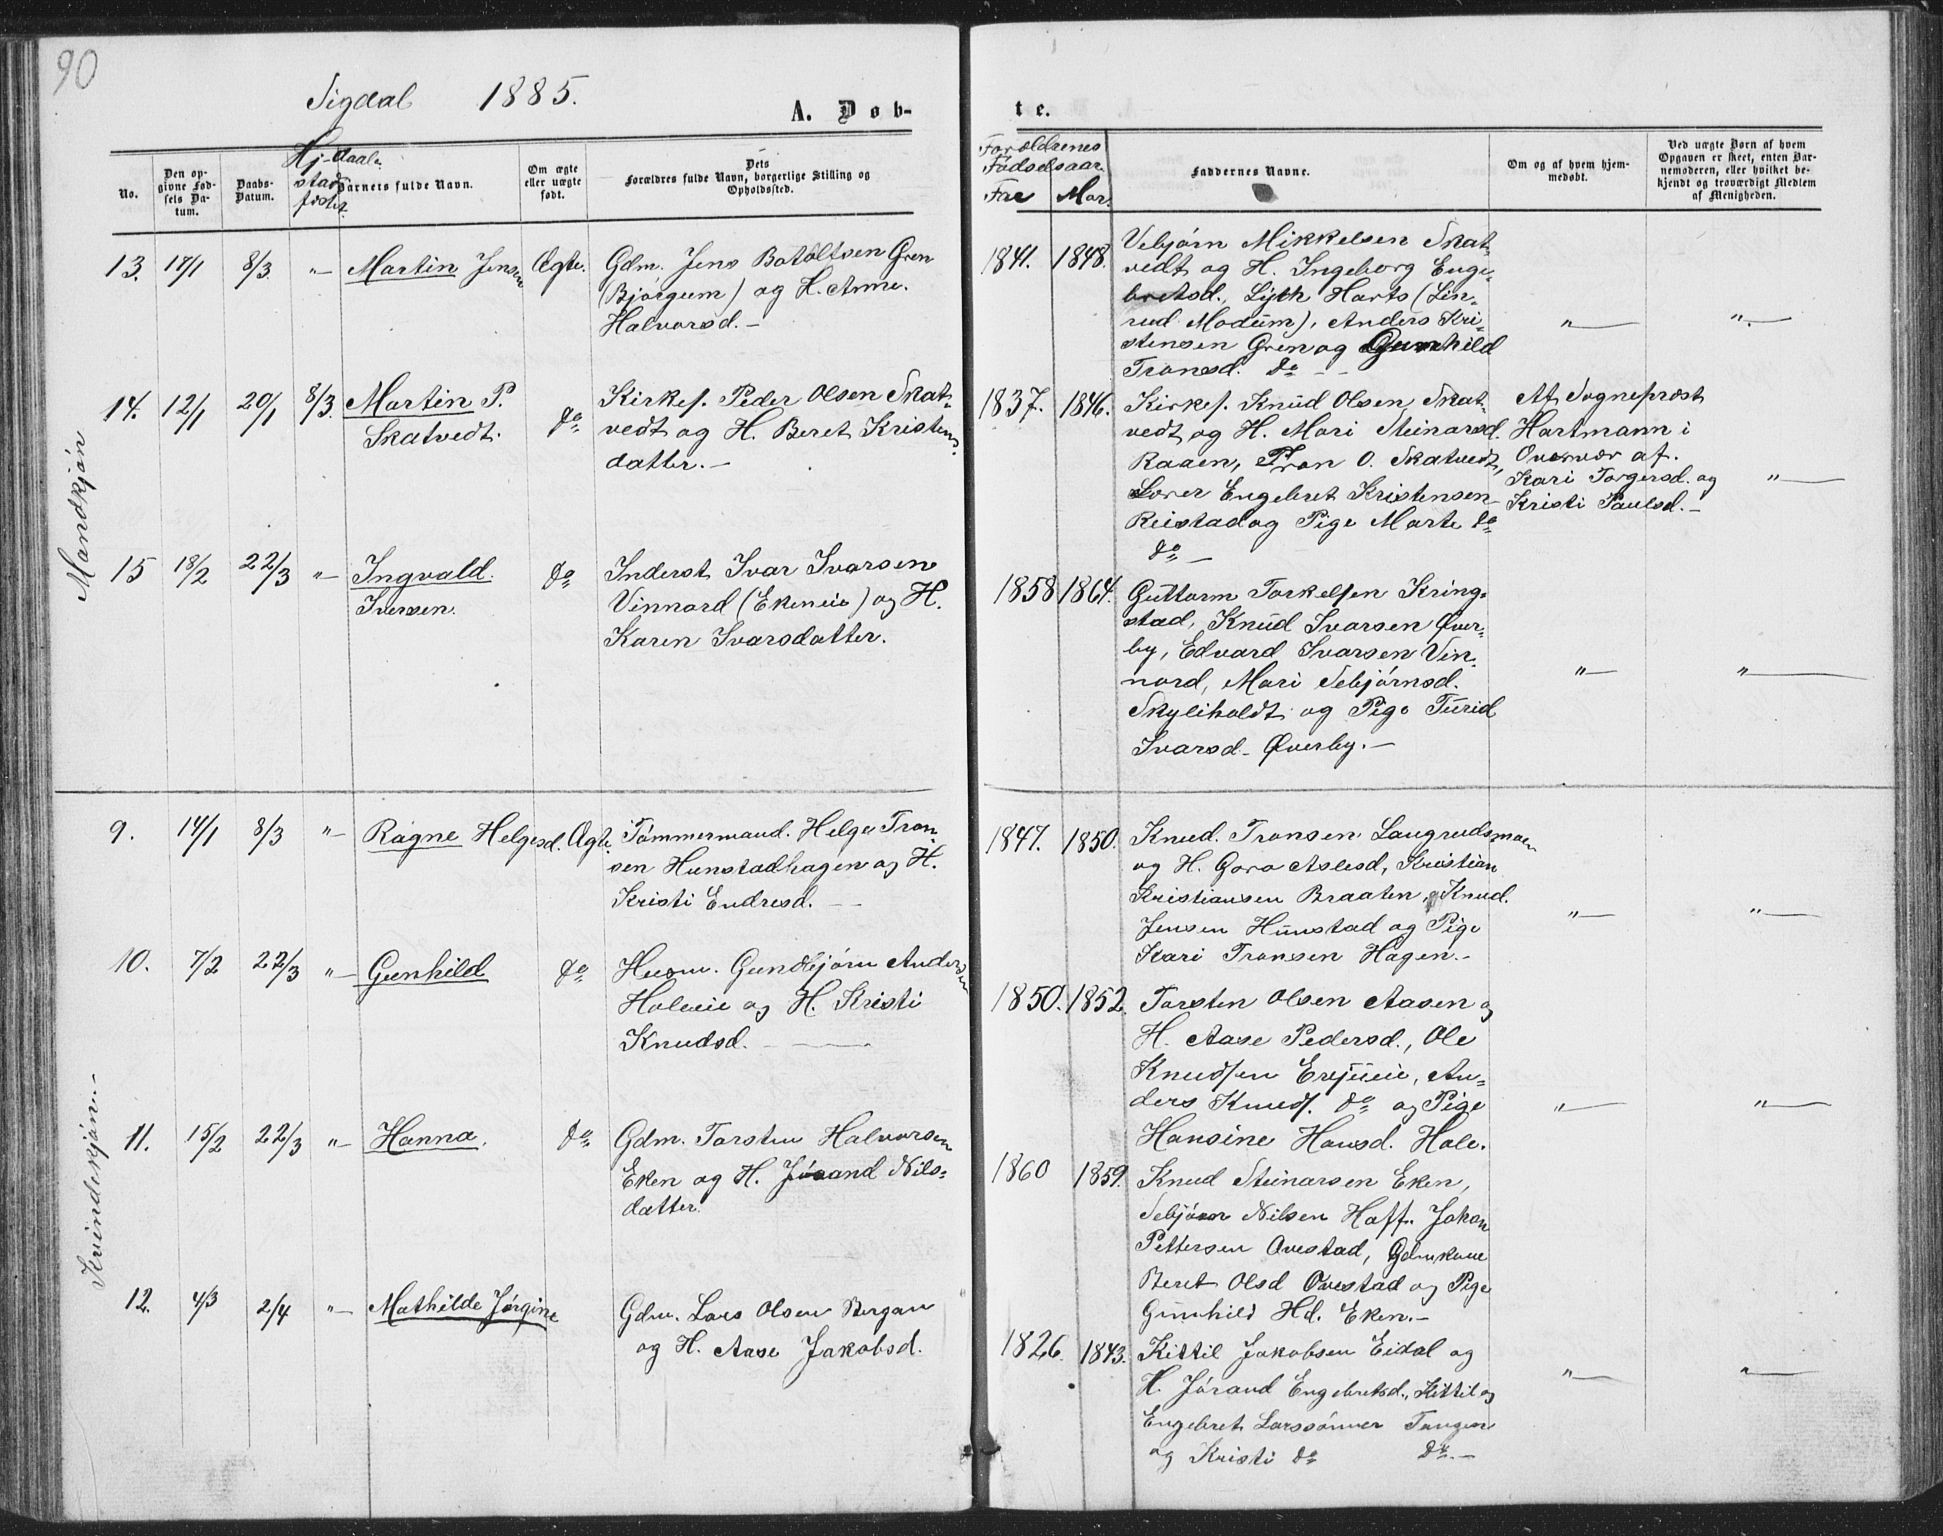 90
Sigdal 1885.
A. Døb-
te.
No.
Den op-
givne Fød-
sels Da-
tum.
Daabs-
Datum.
Hj-daab.
stad-
fæstet
Barnets fulde Navn.
Om ægte
eller uægte
født.
Dets
Forældres fulde Navn, borgerlige Stilling og
Opholdssted.
Forældrenes
Fødselsaar.
Far Mor.
Faddernes Navne.
Om og af hvem hjem-
medøbt.
Ved uægte Børn af hvem
Opgaven er skeet, enten Bar-
nemoderen, eller hvilket be-
kjendt og troværdigt Medlem
af Menigheden.
Mandkjøn
13. 17/1 8/3 "— Martin Jensen Ægte.
Gdm. Jens Botoltsen Gren
(Bjørgum) og H. Anne.
Halvorsd.—
1841. 1848.
Vebjørn Mikkelsen Skat-
vedt og H. Ingeborg Enge-
bretsd., Harts (Lin-
rud Modum), Anders Kri-
stensen Gren og Gunhild
Tronsd. do — —
"— "—
14. 12/1 20/1 8/3. Martin P.
Skatvedt. do
Kirkes. Peder Olsen Skat-
vedt og H. Beret Kristens-
datter.—
1837. 1846.
Kirkes. Knud Olsen Skat-
vedt og H. Mari Steinarsd.
Raaen, Tron O. Skatvedt,
Lærer Engebret Kristensen
Reistad og Pige Marte do
do —
Af Sogneprest
Hartmann i
Overvær af.
Kari Torgersd. og
Kristi Paulsd.— "—
15 18/2 22/3 "— Ingvald.
Iversen. do
Inderst Ivar Ivarsen
Vinnord (Ekeneie) og H.
Karen Ivarsdatter.
1858 1864.
Guttorm Torkelsen Kring-
stad, Knud Ivarsen Øver-
by, Edvard Ivarsen Vin-
nord, Mari Sebjørnsd.
Skyliholdt og Pige Turid
Ivarsd. Øverby.—
"— "—
Kvindekjøn.—
9. 14/1 8/3 "— Ragne Helgesd. Ægte.
Tømmermand. Helge Tron-
sen Hunstadhagen og H.
Kristi Endresd. — —
1847. 1850.
Knud. Tronsen Laugrudsmoen
og H. Goro Aslesd, Kristian
Kristiansen Braaten, Knud.
Jensen Hunstad og Pige
Kari Tronsen Hagen.—
"— "—
10. 7/2 22/3 "— Gunhild do
Husm. Gundbjørn Andersen
Holeeie og H. Kristi
Knudsd. —
1850. 1852.
Torsten Olsen Aasen og
H. Aase Pedersd., Ole
Knudsen, An-
ders Knuds. do og Pige
Hansine Hansd. Hole.
"— "—
11. 15/2 22/3 "— Hanna. do
Gdm. Torsten Halvorsen
Eken og H. Jørand Nils-
datter.
1860 1859.
Knud Steinarsen Eken,
Sebjørn Nilsen Haff. Jakon
Pettersen Ovestad, Gdmkone
Beret Olsd Ovestad og Pige
Gunhild Hd. Eken.—
12. 4/3 2/4 "— Mathilde Jørgine
Gdm. Lars Olsen Bergan
og H. Aase Jakobsd.
1826. 1843.
Kittil Jakobsen Eidal og
H. Jørand Engebretsd., Kittil og
Engebret Larssønner Tangen
og Kristi do do.—
"— "—